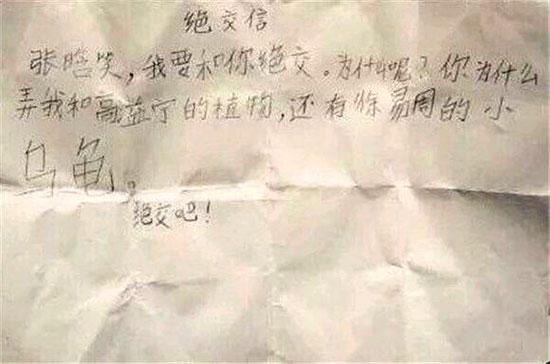 绝交信
张晗笑，我要和你绝交。为什么呢？你为什么
弄我和高益宁的植物，还有徐易周的小
乌龟。
绝交吧！